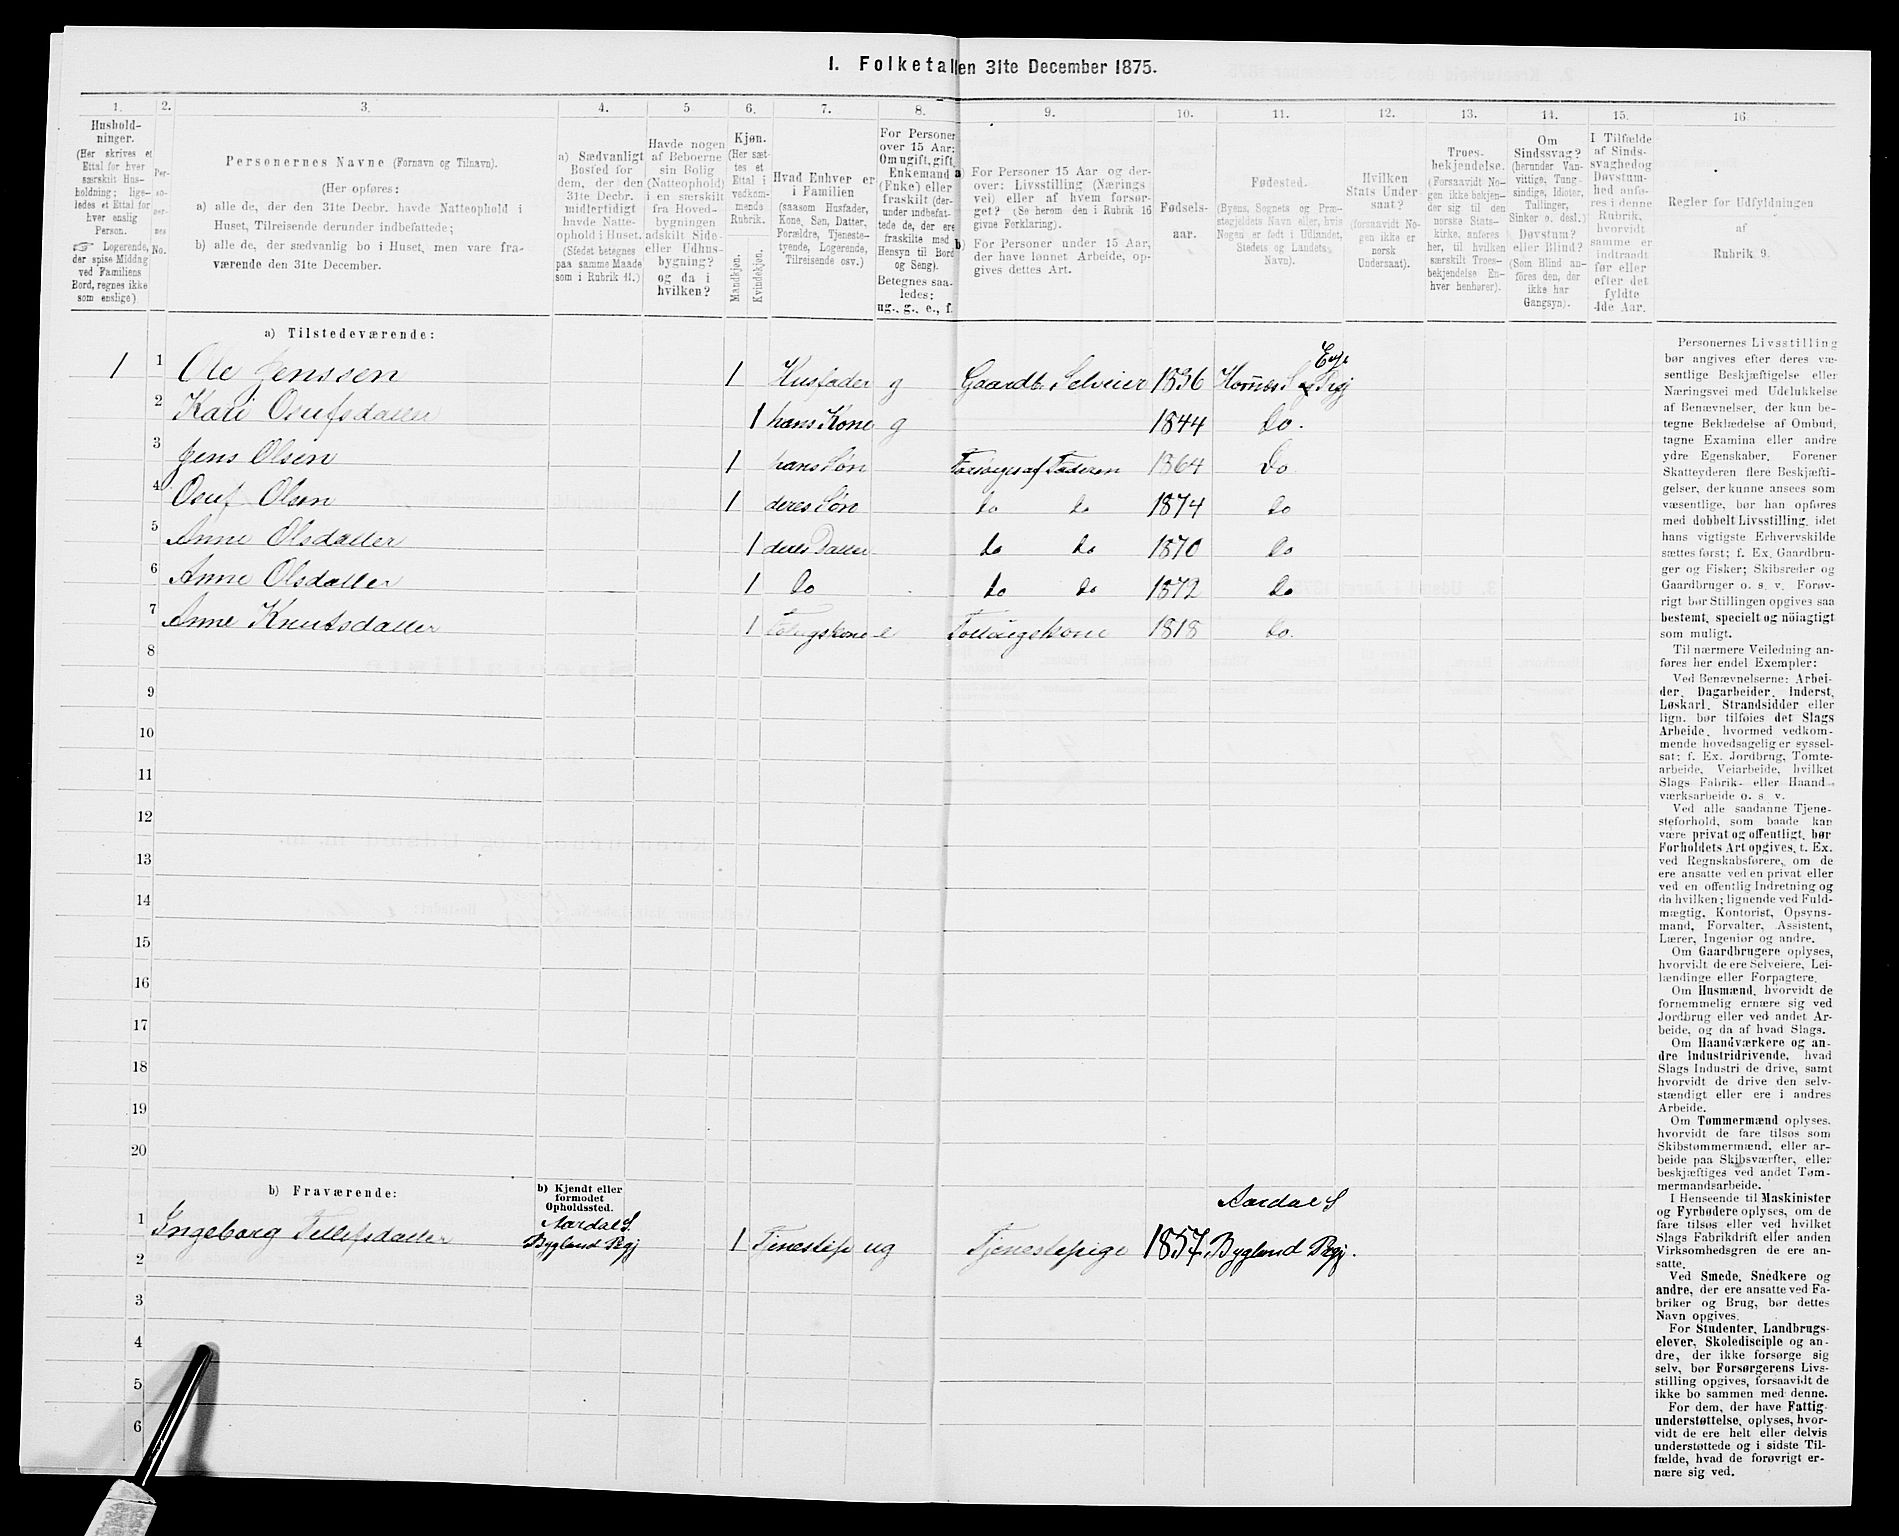 I. Folketal den 31te December 1875.
1. 2. 3. 4. 5 6. 7. 8. 9. 10. 11. 12. 13. 14. 15. 16.
Hushold-
ninger.
(Her skrives et
Ettal for hver
særskilt Hus-
holdning; lige-
ledes et Ettal for
hver enslig
Person.
☞ Logerende,
der spise Middag
ved Familiens
Bord, regnes ikke
som enslige)
Per-
so-
ner-
nes
No.
Personernes Navne (Fornavn og Tilnavn).
(Her opføres:
a) alle de, der den 31te Decbr. havde Natteophold i
Huset, Tilreisende derunder indbefattede;
b) alle de, der sædvanlig bo i Huset, men vare fra-
værende den 31te December.
a) Sædvanligt
Bosted for
dem, der den
31te Decbr.
midlertidigt
havde Natte-
ophold i Huset.
(Stedet betegnes
paa samme Maade
som i Rubrik 11.)
Havde nogen
af Beboerne
sin Bolig
(Natteophold)
i en særskilt
fra Hoved-
bygningen
adskilt Side-
eller Udhus-
bygning?
og da i
hvilken?
Kjøn.
(Her sæt-
tes et
Ettal i
vedkom-
mende
Rubrik.
Mandkjøn.
Kvindekjøn.
Hvad Enhver er
i Familien
(saasom Husfader,
Kone, Søn, Datter,
Forældre, Tjeneste-
tyende, Logerende,
Tilreisende osv.)
For Personer
over 15 Aar:
Om ugift, gift,
Enkemand
(Enke) eller
fraskilt (der-
under indbefat-
tede de, der ere
fraskilte med
Hensyn til Bord
og Seng).
Betegnes saa-
ledes:
ug., g., e., f.
a) For Personer 15 Aar og der-
over: Livsstilling (Nærings
vei) eller af hvem forsør-
get? (Se herom den i Rubrik 16
givne Forklaring).
b) For Personer under 15 Aar,
der have lønnet Arbeide, op-
gives dettes Art.
Fødsels-
aar.
Fødested.
(Byens, Sognets og Præ-
stegjeldets Navn eller, hvis
Nogen er født i Udlandet,
Stedets og Landets
Navn).
Hvilken
Stats Under-
saat?
(forsaavidt No-
gen ikke er
norsk
Undersaat).
Troes-
bekjendelse.
(Forsaavidt No-
gen ikke bekjen-
der sig til den
norske Stats-
kirke, anføres
her, til hvilken
særskilt Troes-
bekjendelse En-
hver henhører).
Om
Sindssvag?
(herunder Van-
vittige, Tung-
sindige, Idioter,
Tullinger,
Sinker o. desl.)
Døvstum?
eller Blind?
(Som Blind an-
føres den, der
ikke har
Gangsyn).
I Tilfælde
af Sinds-
svaghed og
Døvstum-
hed anfø-
res i denne
Rubrik,
hvorvidt
samme er
indtraadt
før eller
efter det
fyldte
4de Aar.
Regler for Udfyldningen
af
Rubrik 9.
a) Tilstedeværende:
1 1 Ole Jenssen 1 Husfader g Gaardb. Selveier 1836 Hornes S Evje Prgj
2 Kari Osufsdatter 1 hans Kone g 1844 Do.
3 Jens Olsen 1 hans Søn Forsørges af Faderen 1864 Do
4 Osuf Olsen 1 deres Søn do do 1874 do
5 Anne Olsdatter 1 deres Datter do do 1870 do
6 Anne Olsdatter 1 do do do 1872 do
7 Anne Knutsdatter 1 e 1818 do.
8
9
10
11
12
13
14
15
16
17
18
19
20
b) Fraværende:
b) Kjendt eller
formodet
Opholdssted.
1 Ingeborg Tellefsdatter Aardal S. Bygland Prgj 1 Tjenestepi ug Tjenestepige 1857 Aardal S Bygland Prgj.
2
3
4
5
6
Personernes Livsstilling
bør angives efter deres væ-
sentlige Beskjæftigelse eller
Næringsvei med Udelukkelse
af Benævnelser, der kun be-
tegne Beklædelse af Ombud,
tagne Examina eller andre
ydre Egenskaber. Forener
Skatteyderen flere Beskjæfti-
gelser, der kunne ansees som
væsentlige, bør han opføres
med dobbelt Livsstilling, idet
hans vigtigste Erhvervskilde
sættes først; f. Ex. Gaardbru-
ger og Fisker; Skibsreder og
Gaardbruger o. s. v. Forøv-
rigt bør Stillingen opgives saa
bestemt, specielt og nöiagtigt
som muligt.
Til nærmere Veiledning an-
føres her endel Exempler:
Ved Benævnelserne: Arbei-
der, Dagarbeider, Inderst,
Løskarl, Strandsidder eller
lign. bør tilføies det Slags
Arbeide, hvormed vedkom-
mende hovedsagelig er syssel-
sat; f. Ex. Jordbrug, Tomte-
arbeide, Veiarbeide, hvilket
Slags Fabrik- eller Haand-
værksarbeide o. s. v.
Ved alle saadanne Tjene-
steforhold, som baade kan
være privat og offentligt, bør
Forholdets Art opgives, t. Ex.
ved Regnskabsførere, om de
ere ansatte ved en privat eller
ved en offentlig Indretning og
da hvilken; lignende ved Fuld-
mægtig, Kontorist, Opsyns-
mand, Forvalter, Assistent,
Lærer, Ingeniør og andre.
Om Gaardbrugere oplyses,
hvorvidt de ere Selveiere, Lei-
lændinge eller Forpagtere.
Om Husmænd, hvorvidt de
fornemmelig ernære sig ved
Jordbrug eller ved andet Ar-
beide, og da af hvad Slags.
Om Haandværkere og an-
dre Industridrivende, hvad
Slags Industri de drive, samt
hvorvidt de drive den selv-
stændigt eller ere i andres
Arbeide.
Om Tømmermænd oplyses,
hvorvidt de fare tilsøs som
Skibstømmermænd, eller ar-
beide paa Skibsværfter, eller
beskjæftiges ved andet Tøm-
mermandsarbeide.
I Henseende til Maskinister
og Fyrbødere oplyses, om de
fare tilsøs eller ved hvilket
Slags Fabrikdrift eller anden
Virksomhedsgren de ere an-
satte.
Ved Smede, Snedkere og
andre, der ere ansatte ved Fa-
briker og Brug, bør dettes
Navn opgives.
For Studenter, Landbrugs-
elever, Skoledisciple og an-
dre, der ikke forsørge sig
selv, bør Forsørgerens Livs-
stilling opgives, forsaavidt de
ikke bo sammen med denne.
For dem, der have Fattig-
understøttelse, oplyses, hvor-
vidt de ere helt eller delvis
understøttede og i sidste Til-
fælde, hvad de forøvrigt er-
nære sig ved.